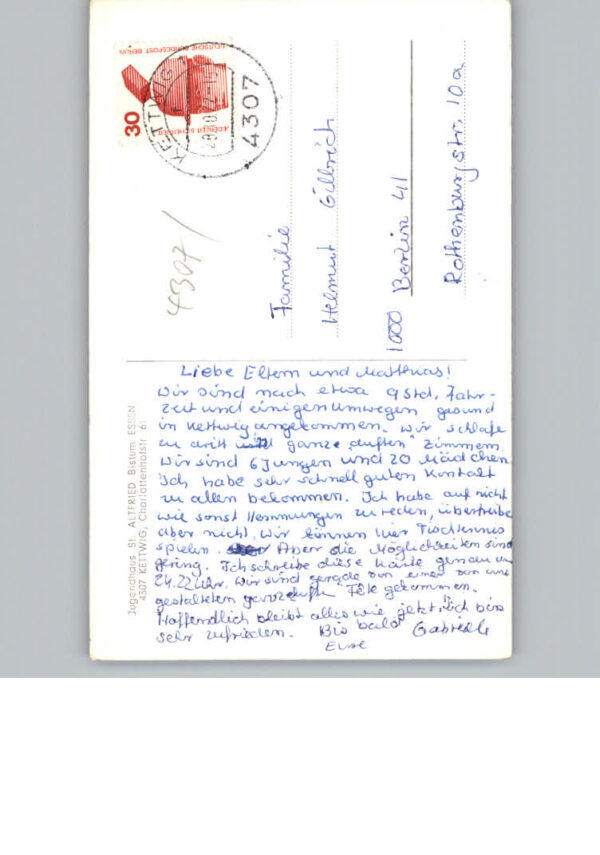 Liebe Eltern und Matthias!
Wir sind nach etwa 9 Std. Fahr-
zeit und einigen Umwegen gesund
in Kettwig angekommen. Wir schlafe
zu dritt ganze duften Zimmern
Wir sind 6 Jungen und 20 Mädchen
Ich habe sehr schnell guten Kontakt
zu allen bekommen. Ich habe auf nicht
wie sonst Hemmungen zu reden, übertreibe
aber nicht. Wir können hier Tischtennis
spielen. Aber die Möglichkeiten sind
gering. Ich schreibe diese Karte genau um
24.22 Uhr. Wir sind gerade von einer von uns
gestalteten Fete gekommen.
Hoffendlich bleibt alles wie jetzt. Ich bin
sehr zufrieden. Bis bald Gabriele
Eure
Jugendhaus St. ALTFRIED Bistum ESSEN
4307 KETTWIG, Charlottenhofstr. 61
4307/
30
DEUTSCHE BUNDESPOST BERLIN
JEDERZEIT SICHERHEIT
KETTWIG
4307
Familie
Helmut Gillrich
1000 Berlin 41
Rothenburgstr. 10a